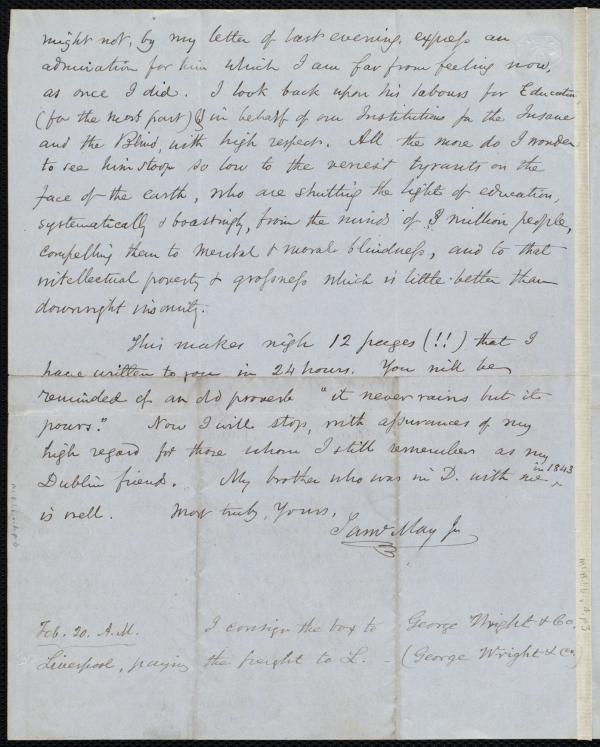 might not, by my letter of last evening, express an
admiration for him which I am far from feeling now,
as once I did. I look back upon his labours for Education
(for the most part) & in behalf of our Institutions for the Insane
and the Blind, with high respect. All the more do I wonder
to see him stoop so low to the veriest tyrants on the
face of the earth, who are shutting the light of education,
systematically & boastingly, from the minds of 3 million people,
compelling them to mental & moral blindness, and to that
intellectual poverty & grossness which is little better than
downright insanity.
This makes nigh 12 pages (!!) that I
have written to you in 24 hours. You will be
reminded of an old proverb "it never rains but it
pours." Now I will stop, with assurances of my
high regard for those whom I still remember as my
Dublin friends. My brother who was in D. with me in 1843
is well. Most truly, Yours,
Saml May Jr
Feb. 20. A.M. I consign the box to George Wright & Co.
Liverpool, paying the freight to L. - (George Wright & Co.)